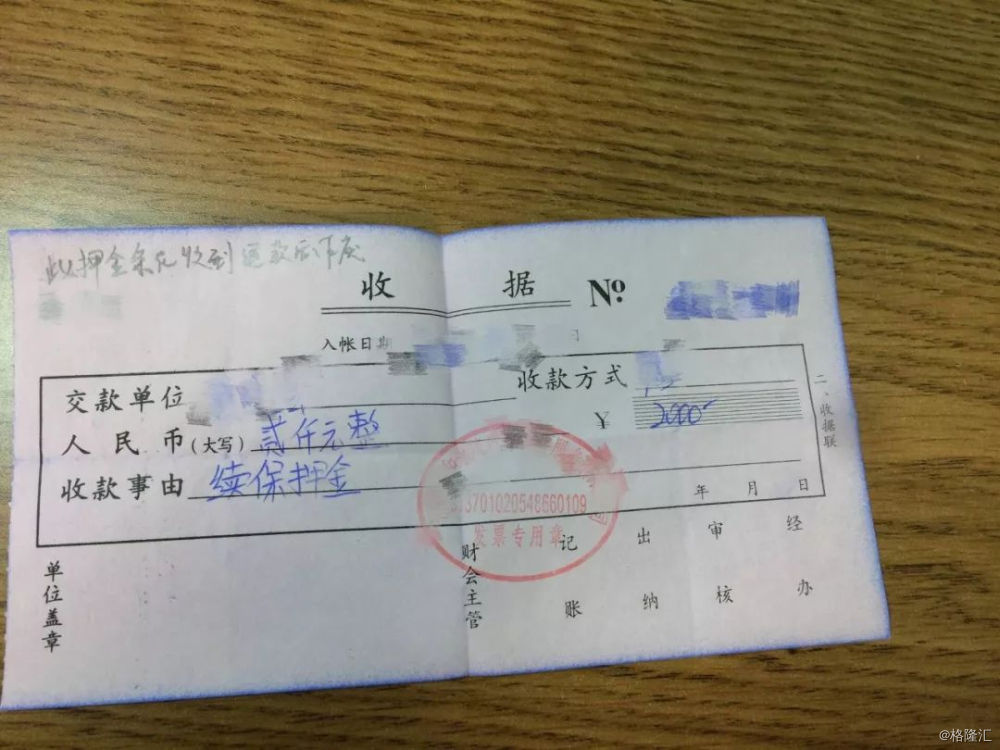 此押金条凡收到退款后作废
收 据 Nº
入帐日期
交款单位 收款方式
人民币(大写) 贰仟元整 ¥ 2000
收款事由 续保押金
年 月 日
二、收据联
370102054866010​9
发票专用章
单位盖章
财会主管
记账
出纳
审核
经办
@格隆汇